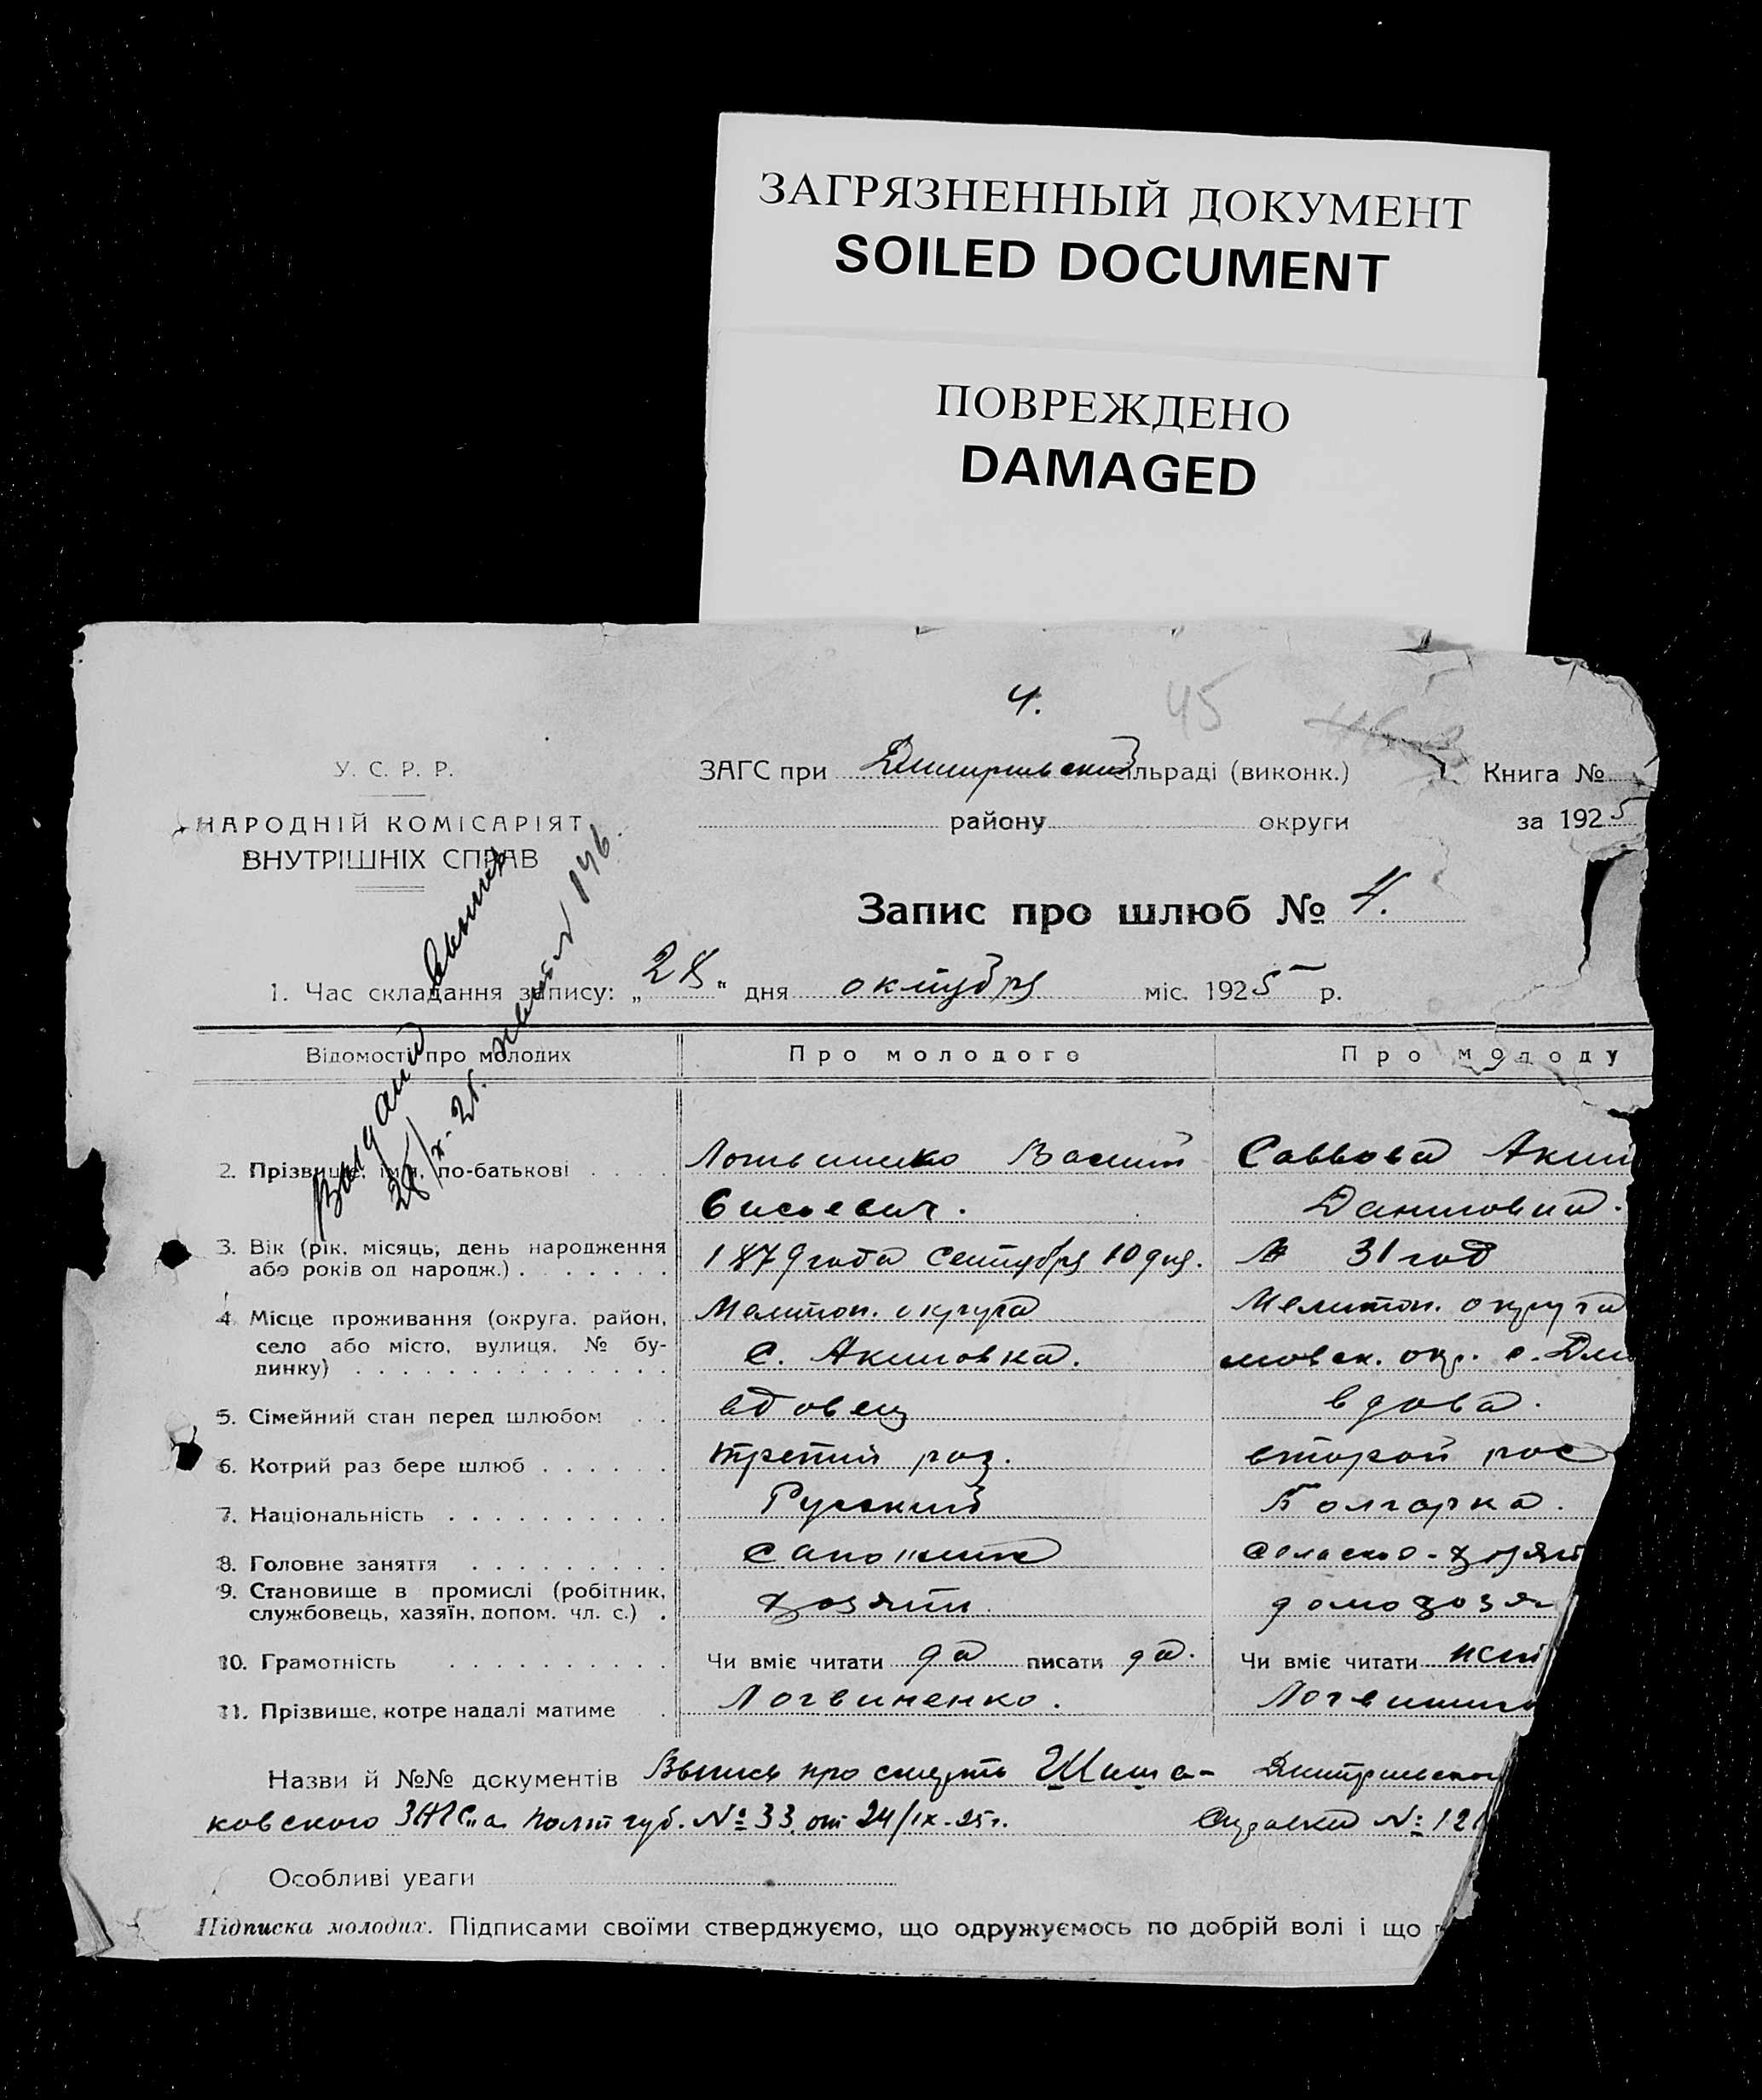 ЗАГРЯЗНЕННЫЙ ДОКУМЕНТ
SOILED DOCUMENT
ПОВРЕЖДЕНО
DAMAGED
4.
45
У. С. Р. Р.
НАРОДНІЙ КОМІСАРІЯТ
ВНУТРІШНІХ СПРАВ
ЗАГС при льраді (виконк.)
Книга №
району округи
за 1925
Запис про шлюб № 4.
1. Час складання запису: „28" дня октября міс. 1925 р.
Відомості про молодих
Про молодого
Про молоду
2. Прізвище, імя, по-батькові
Василий
Саввова Аким
Даниловна.
3. Вік (рік, місяць, день народження
або років од народж.)
1879 года Сентября 10 дня.
31 год
4. Місце проживання (округа, район,
село або місто, вулиця, № бу-
динку)
Мелитоп. округа
С. Акимовка.
Мелитоп. округа
мовск. окр. с. Дми
5. Сімейний стан перед шлюбом
вдовец
вдова.
6. Котрий раз бере шлюб
третий раз.
второй раз
7. Національність
Русский
Болгарка.
8. Головне заняття
Сапожник
9. Становище в промислі (робітник,
службовець, хазяїн, допом. чл. с.)
хозяин
домохозя
10. Грамотність
Чи вміє читати да писати да.
Чи вміє читати
11. Прізвище, котре надалі матиме
Логвиненко.
Назви й №№ документів Выпись про смерть Шиша-
ковского ЗАГС"а Полт губ. № 33 от 24/IX-25 г.
Справка № 121
Особливі уваги
Підписка молодих. Підписами своїми стверджуємо, що одружуємось по добрій волі і що